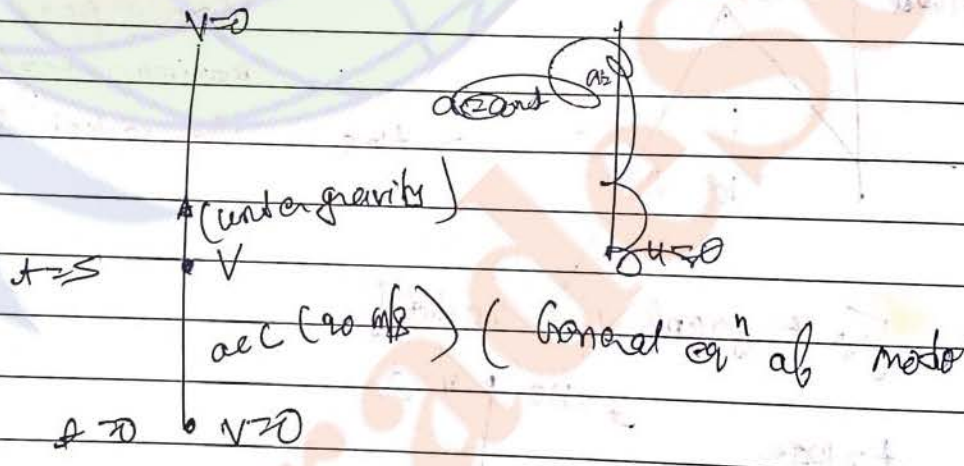 V=0
a=const
(under gravity)
u=0
t=5
V
acc (20 m/s) ( General eqⁿ of moto
t=0 V=0